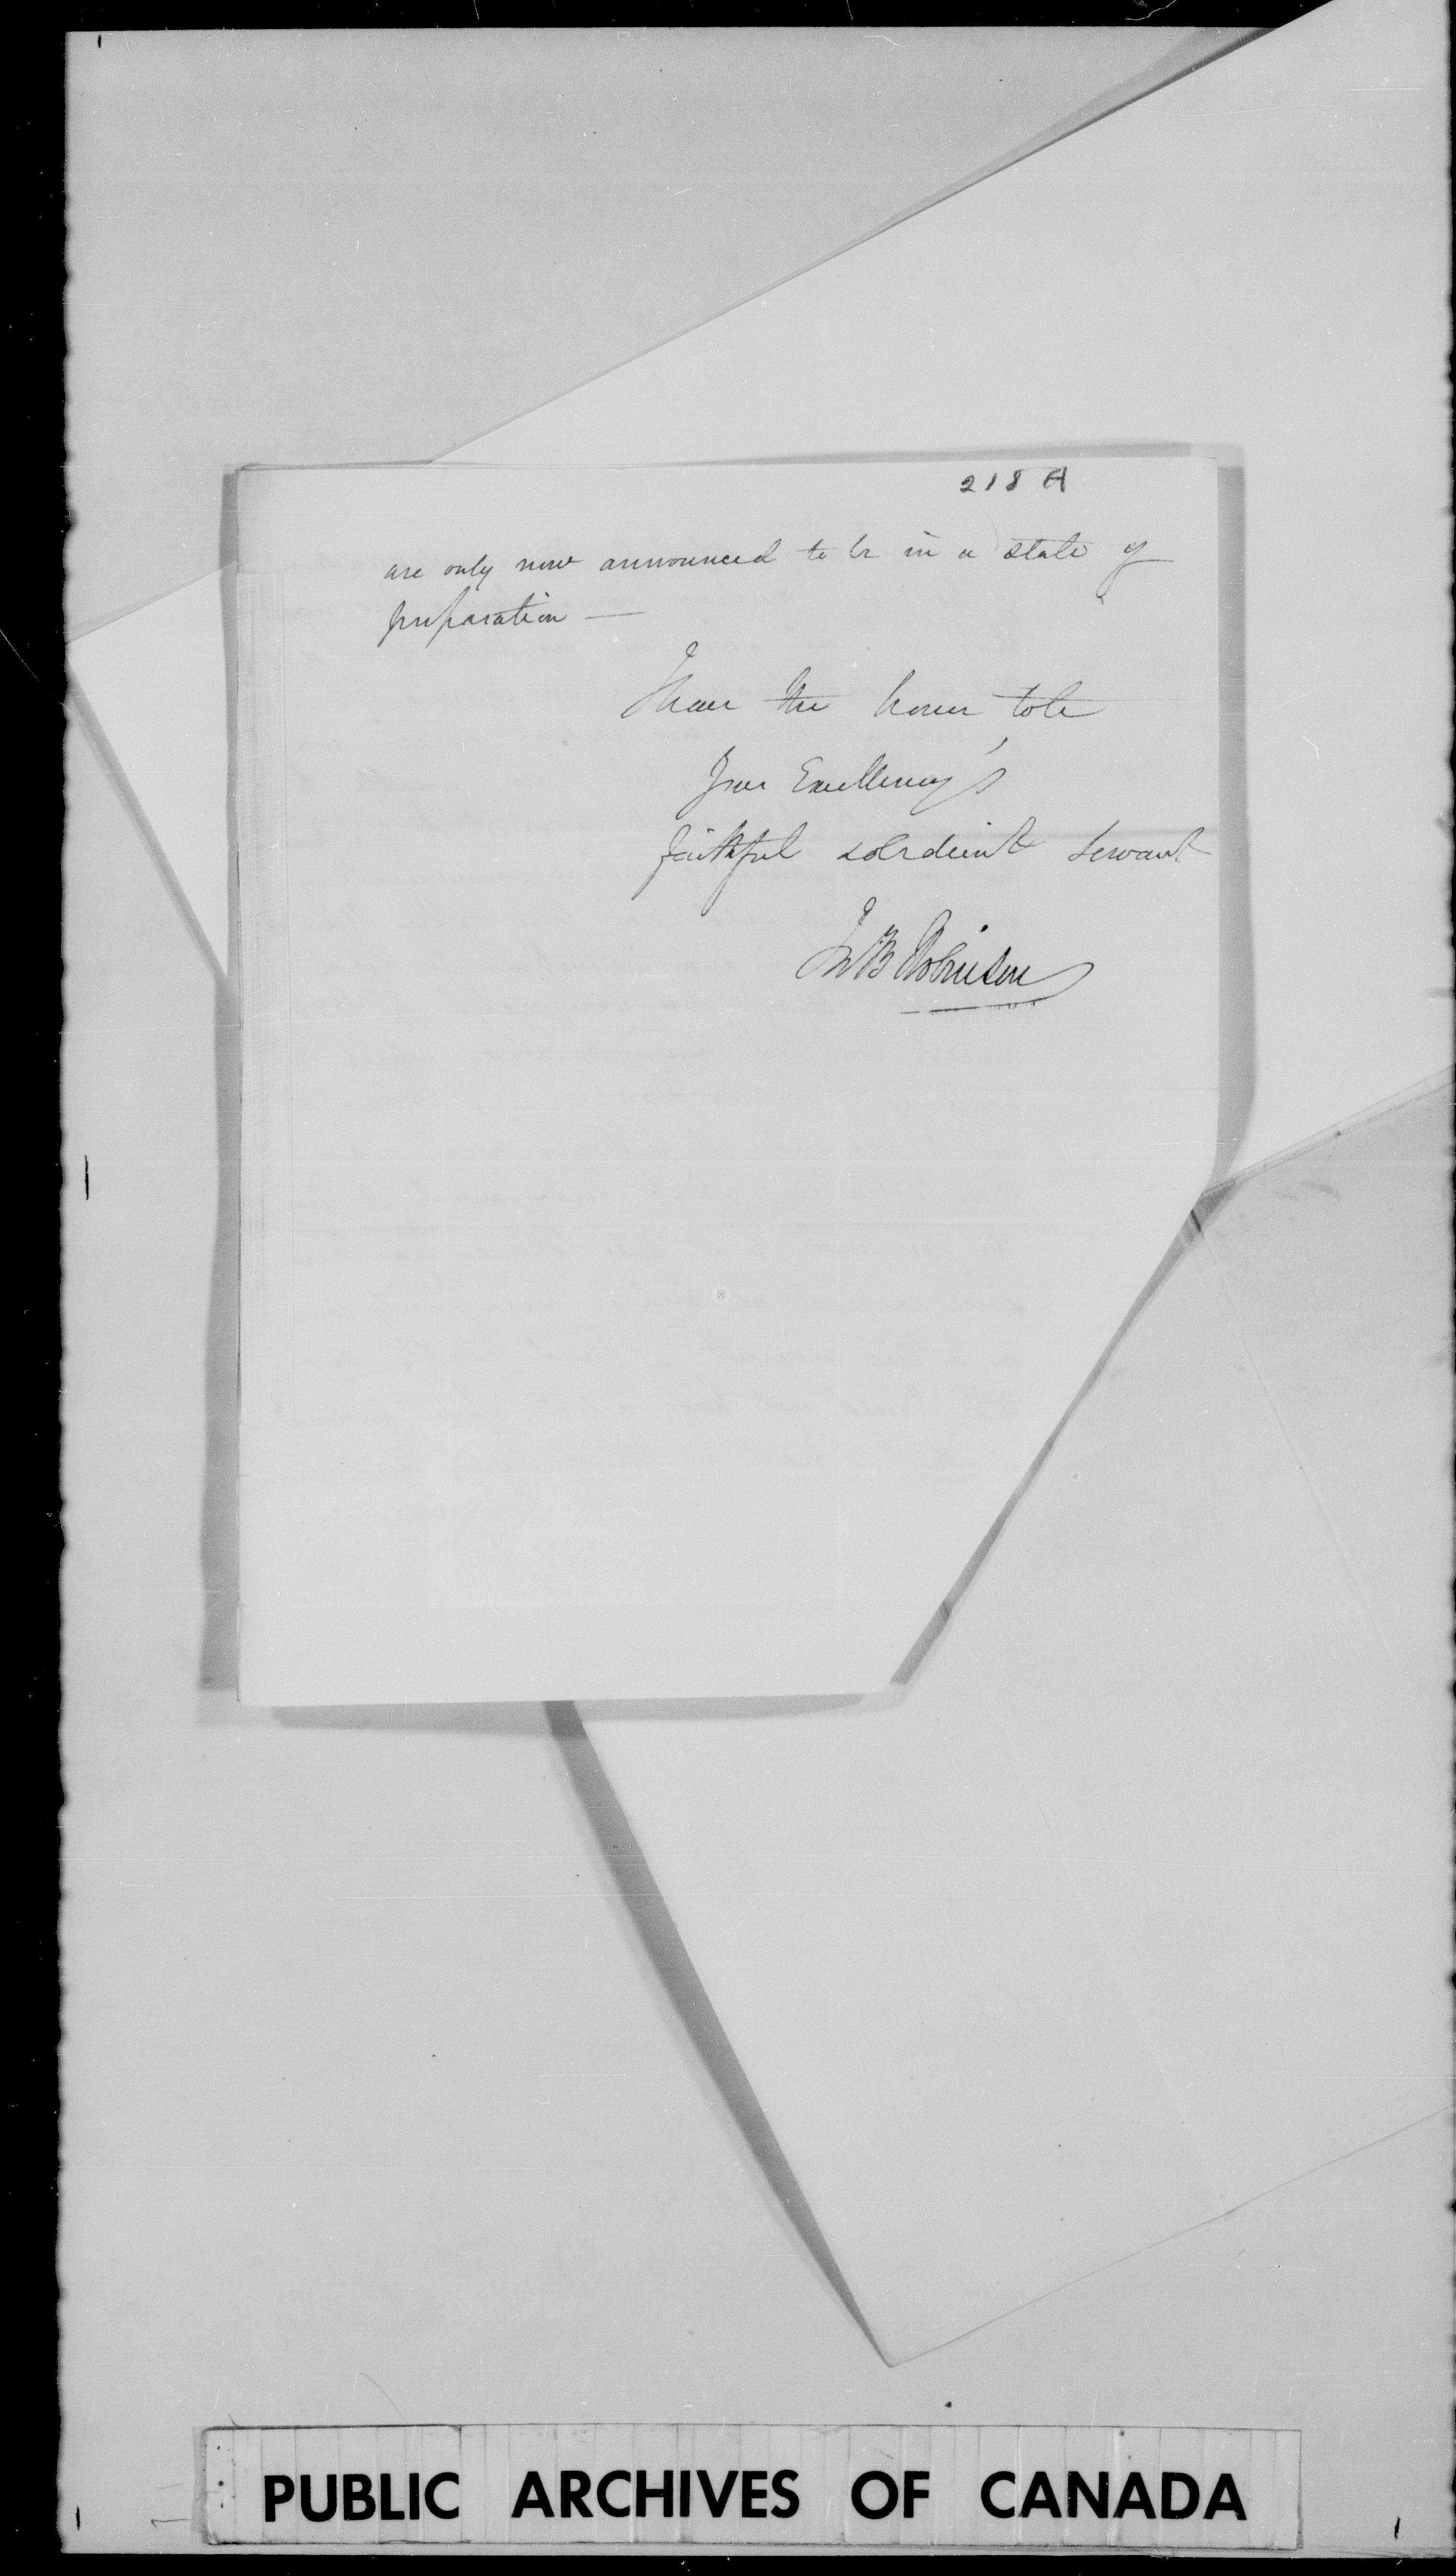 218 A
are only now announced to be in a state of
preparation —
I have the honor to be
Your Excellency's
faithful & obedient Servant
Jno B Robinson
PUBLIC ARCHIVES OF CANADA